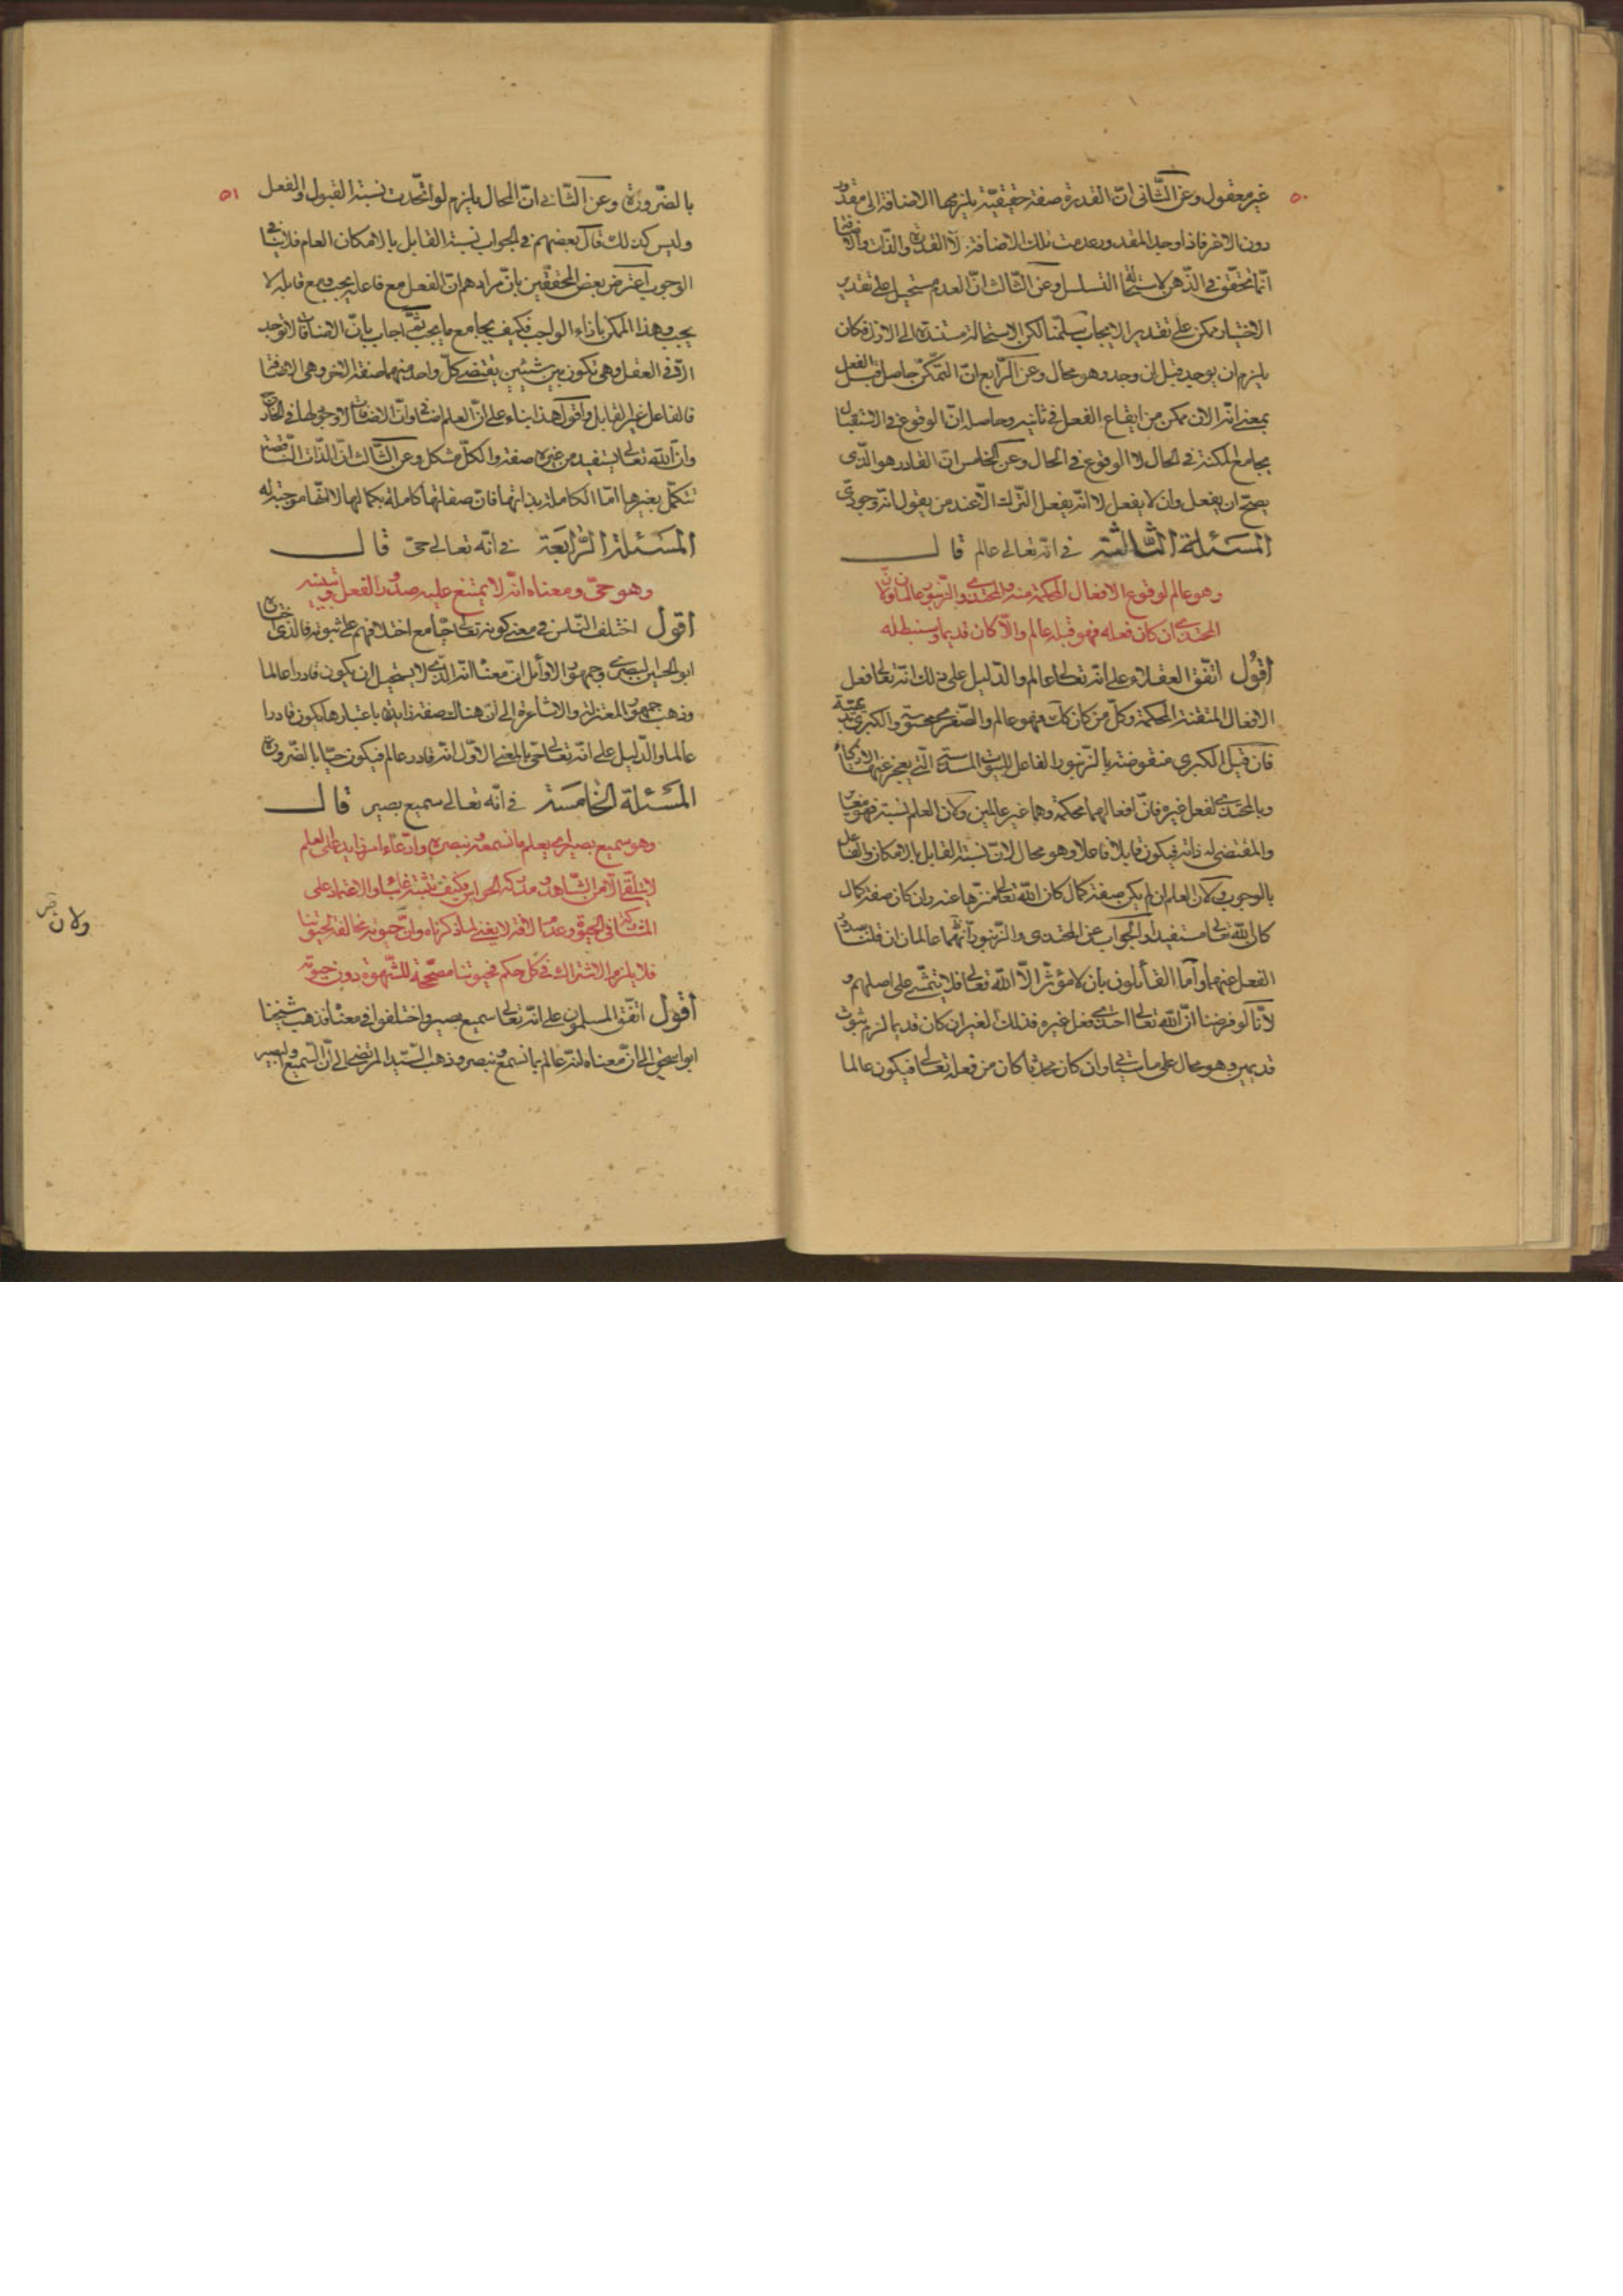 ٥٠
غير معقول وعن الثاني انّ القدرة صفة حقيقيّة يلزمها الاضافة الى مقدور
دون الاخر فاذا وجد المقدور عدمت تلك الاضافة لا القدرة والذات والاضافة
انّما تتحقّق في الذّهن لاستحالة التسلسل وعن الثّالث انّ العدم مستحيل على تقدير
الاختيار ممكن على تقدير الايجاب سلّمنا لكن الاستحالة مستندة الى الازل فكان
يلزم ان يوجد قبل ان وجد وهو محال وعن الرّابع انّ التمكّن حاصل قبل الفعل
بمعنى انّه الان ممكن من ايقاع الفعل في ثانيه وحاصله انّ الوقوع في الاستقبال
يجامع المكنة في الحال لا الوقوع في الحال وعن الخامس انّ القادر هو الّذي
يصحّ ان يفعل وان لا يفعل لا انّه يفعل الترك الّا عند من يقول انّه وجوديّ
المسئلة الثّالثة في انّه تعالى عالم قال
وهو عالم لوقوع الافعال المحكمة منه والمحتذي والزّنبور عالمان ولانّ
المحتذي ان كان فعله فهو قبله عالم والّا كان قديما وسنبطله
اقول اتّفق العقلاء على انّه تعالى عالم والدّليل على ذلك انّه تعالى فعل
الافعال المتقنة المحكمة وكلّ من كان كك فهو عالم والصّغرى محسوسة والكبرى بديهيّة
فان قيل الكبرى منقوضة بالزّنبور الفاعل للبيوت المسدّسة الّتي يعجز عنها الاذكياء
وبالمحتذي لفعل غيره فانّ افعالهما محكمة وهما غير عالمين ولانّ العلم نسبة فهو مغاير
والمقتضي له ذاته فيكون قابلا فاعلا وهو محال لانّ نسبة القابل بالامكان والفاعل
بالوجوب ولانّ العلم ان لم يكن صفة كمال كان الله تعالى منزّها عنه وان كان صفة كمال
كان الله تعالى مستفيدا والجواب عن المحتذي والزّنبور انّهما عالمان ان قلنا بصدور
الفعل عنهما وامّا القائلون بان لا مؤثّر الّا الله تعالى فلا يتمشّى على اصلهم و
لانّا لو فرضنا انّ الله تعالى احتذى فعل غيره فذلك الغير ان كان قديما لزم ثبوت
قديمين وهو محال على ما سيأتي وان كان محدثا كان من فعله تعالى فيكون عالما
٥١
بالضّرورة وعن الثّاني انّ المحال يلزم لو اتّحدت نسبة القبول والفعل
وليس كذلك قال بعضهم في الجواب نسبة القابل بالامكان العام فلا ينافي
الوجوب اعترض بعض المحقّقين بانّ مرادهم انّ الفعل مع فاعله يجب ومع قابله لا
يجب وهذا الممكن بازاء الواجب فكيف يجامع ما يجب اجاب بانّ الاضافات لا توجد
الّا في العقل وهي تكون بين شيئين يقتضي كلّ واحد منهما صفة للاخر وهي الاضافة
فالفاعل غير القابل واقول هذا بناء على انّ العلم اضافي وانّ الاضافات لا وجود لها في الخارج
وانّ الله تعالى يستفيد من غيره صفة والكلّ مشكل وعن الثّالث انّ الذّات النّاقصة
تتكمّل بغيرها امّا الكاملة بذاتها فانّ صفاتها كاملة بكمالها لا انّها موجبة له
المسئلة الرّابعة في انّه تعالى حيّ قال
وهو حيّ ومعناه انّه لا يمتنع عليه صدور الفعل وتبيينه
اقول اختلف النّاس في معنى كونه تعالى حيّا مع اختلافهم على ثبوته فالّذي اختاره
ابو الحسين البصري وجمهور الاوائل انّ معناه انّه الّذي لا يستحيل ان يكون قادرا عالما
وذهب جمهور المعتزلة والاشاعرة الى انّ هناك صفة زايدة باعتبارها يكون قادرا
عالما والدّليل على انّه تعالى حيّ بالمعنى الاوّل انّه قادر عالم فيكون حيّا بالضّرورة
المسئلة الخامسة في انّه تعالى سميع بصير قال
وهو سميع بصير اي يعلم ما نسمعه ونبصره وادّعاء امر زايد على العلم
لا يتلقّى الّا من الشّاهد ومدركه الحواس وكيف نثبته غائبا والاعتماد على
المشاركة في الحيوة وعدم الافة لا يغني لما ذكرناه وانّ حيوته مخالفة لحيوتنا
فلا يلزم الاشتراك في كل حكم فحيوتنا مصحّحة للشّهوة دون حيوته
اقول اتّفق المسلمون على انّه تعالى سميع بصير واختلفوا في معناه فذهب شيخنا
ابو اسحق الى انّ معناه انّه عالم بما نسمع ونبصر وذهب السّيد المرتضى الى انّ السّميع والبصير
ولان